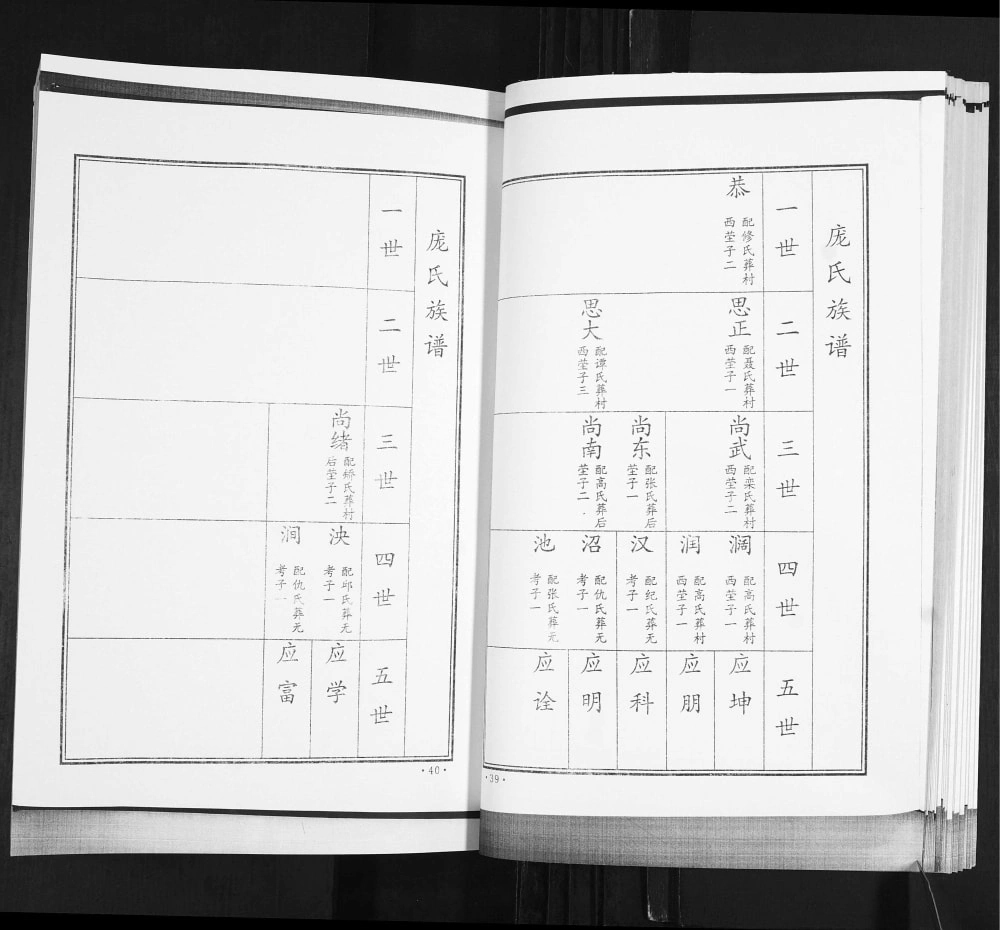 庞氏族谱
一世
恭
配修氏葬村
西茔子二
二世
思正
配聂氏葬村
西茔子一
思大
配谭氏葬村
西茔子三
三世
尚武
配栾氏葬村
西茔子二
尚东
配张氏葬后
茔子一
尚南
配高氏葬后
茔子二
四世
澜
配高氏葬村
西茔子一
润
配高氏葬村
西茔子一
汉
配纪氏葬无
考子一
沼
配仇氏葬无
考子一
池
配张氏葬无
考子一
五世
应坤
应朋
应科
应明
应诠
·39·
庞氏族谱
一世
二世
三世
尚绪
配矫氏葬村
后茔子二
四世
泱
配邱氏葬无
考子一
涧
配仇氏葬无
考子一
五世
应学
应富
·40·